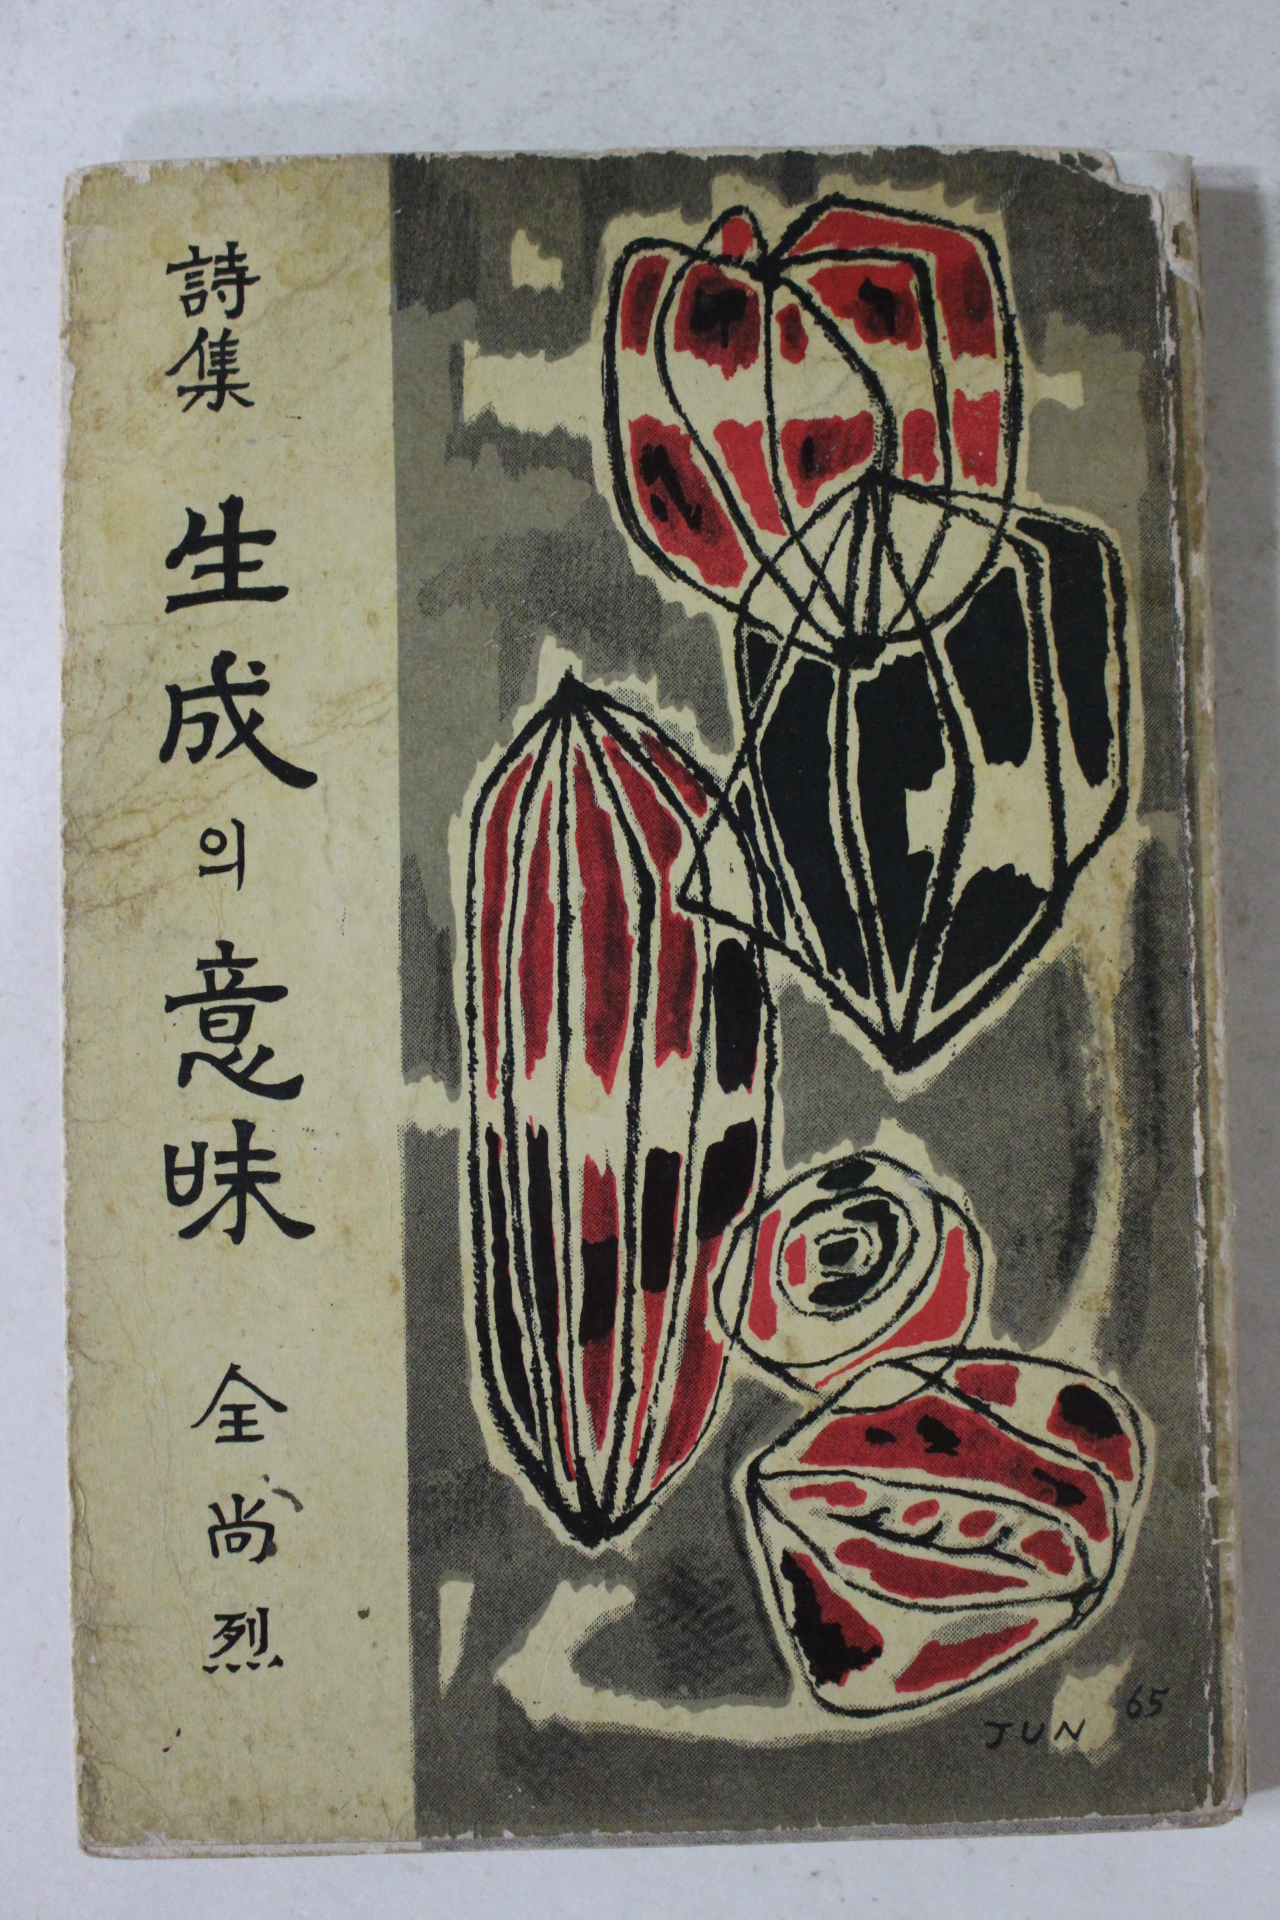 詩集
生成의意味
全尚烈
JUN 65